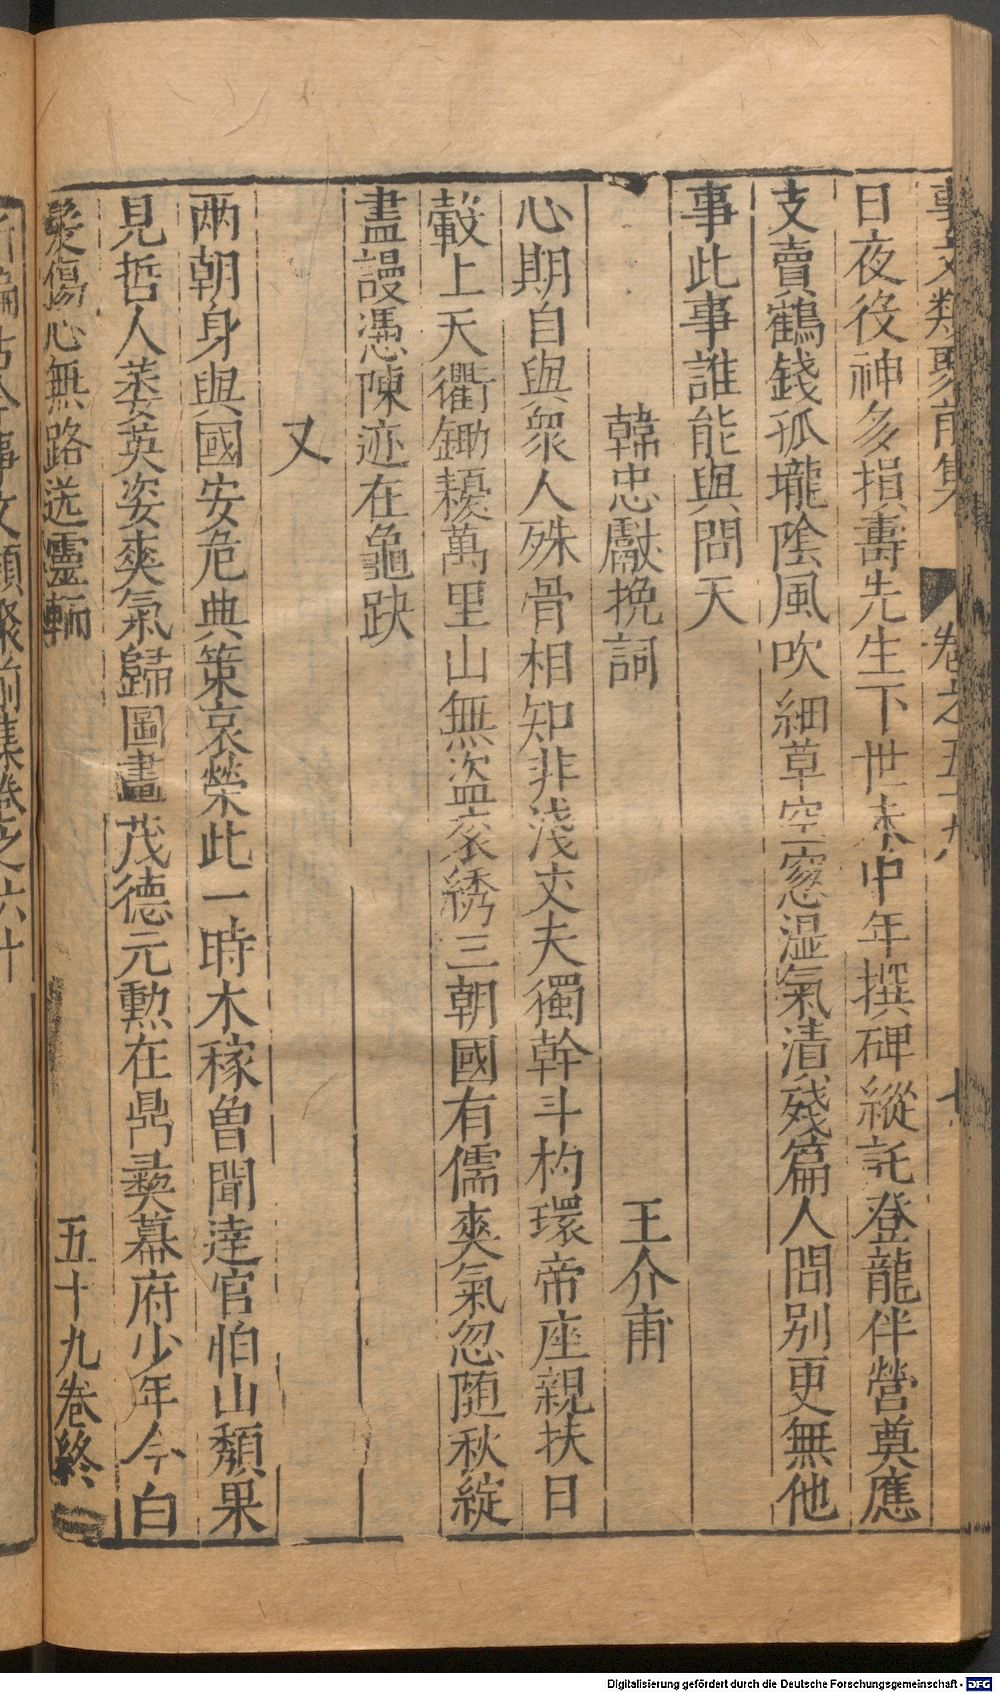 事文類聚前集 卷之五十九 七
日夜役神多損壽先生下世未中年撰碑縱託登龍伴營奠應
支賣鶴錢孤壠陰風吹細草空窓濕氣漬殘篇人間別更無他
事此事誰能與問天
韓忠獻挽詞 王介甫
心期自與衆人殊骨相知非淺丈夫獨幹斗杓環帝座親扶日
轂上天衢鋤耰萬里山無盗衮綉三朝國有儒爽氣忽随秋綻
盡謾憑陳迹在龜趺
又
兩朝身與國安危典策哀榮此一時木稼曽聞逹官怕山頽果
見哲人萎英姿爽氣歸圖畫茂德元勲在鼎彞幕府少年今白
髮傷心無路送靈輀 五十九卷終
新編古今事文類聚前集卷之六十
Digitalisierung gefördert durch die Deutsche Forschungsgemeinschaft - DFG